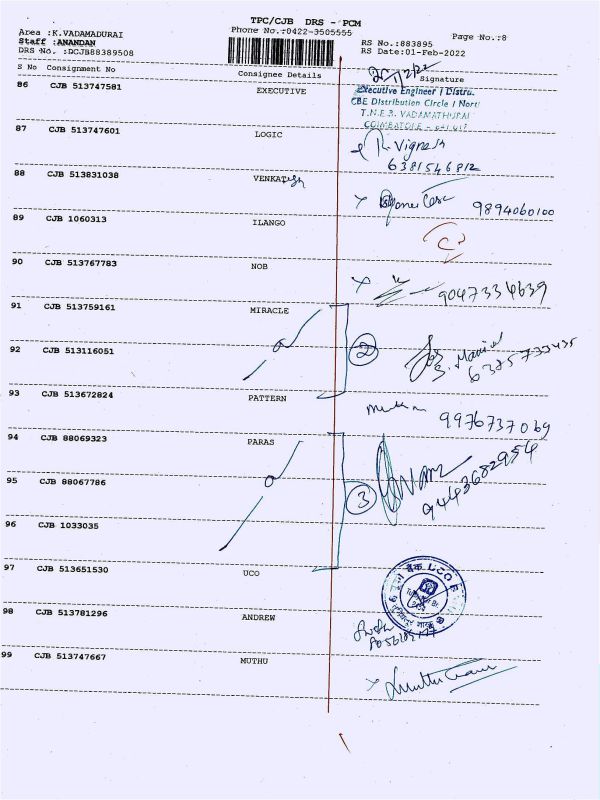 TPC/CJB DRS - PCM
Area :K.VADAMADURAI Phone No.:0422-3505555 Page No.:8
Staff :ANANDAN RS No.:883895
DRS No. :DCJB88389508 RS Date:01-Feb-2022
S No Consignment No Consignee Details Signature
1/2/22
86 CJB 513747581 EXECUTIVE
Executive Engineer / Distru.
CBE Distribution Circle / North
T.N.E.B. VADAMATHURAI
COIMBATORE - 641 017
87 CJB 513747601 LOGIC
R. Vignesh
6381546812
88 CJB 513831038 VENKATesh
9894060100
89 CJB 1060313 ILANGO
C
90 CJB 513767783 NOB
9047334639
91 CJB 513759161 MIRACLE
2
92 CJB 513116051
93 CJB 513672824 PATTERN
9976737069
94 CJB 88069323 PARAS
9443682954
95 CJB 88067786
3
96 CJB 1033035
97 CJB 513651530 UCO
98 CJB 513781296 ANDREW
99 CJB 513747667 MUTHU